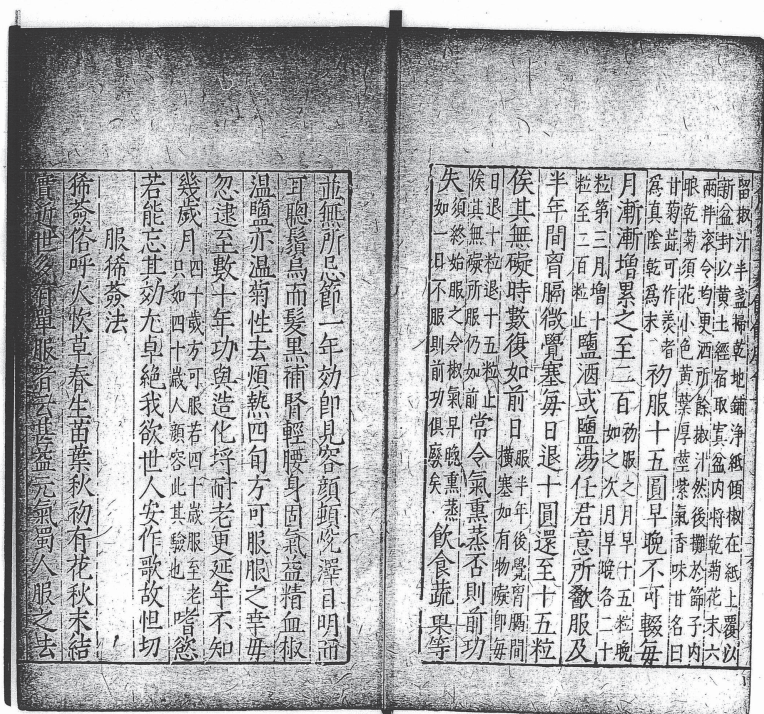 留椒汁半盞掃乾地鋪淨紙傾椒在紙上覆以
新盆封以黃土經宿取寘盆內將乾菊花末六
兩拌滾令均更洒所餘椒汁然後攤於篩子內
眼乾菊須花小色黃葉厚莖紫氣香味甘名曰
甘菊蕋可作羮者
爲真陰乾爲末
初服十五圓早晚不可輟每
月漸漸增累之至二百
初服之月早十五粒晚
如之次月早晚各二十
粒第三月增十
粒至二百粒止
鹽酒或鹽湯任君意所歠服及
半年間胷膈微覺塞每日退十圓還至十五粒
俟其無礙時數復如前日
服半年後覺胷膈間
橫塞如有物礙即每
日退十粒退十五粒止
俟其無礙所服仍如前
常令氣熏蒸否則前功
失
須終始服之令椒氣早晚熏蒸
如一日不服則前功俱廢矣
飲食蔬果等
並無所忌節一年効即見容顔頓恱澤目明而
耳聰鬚烏而髮黑補腎輕腰身固氣益精血椒
温鹽亦温菊性去煩熱四旬方可服服之幸毎
忽逮至數十年功與造化埒耐老更延年不知
幾歲月
四十歲方可服若四十歲服至老
只如四十歲人顔容此其驗也
嗜慾
若能忘其効尤卓絶我欲世人安作歌故怛切
服稀薟法
稀薟俗呼火杴草春生苗葉秋初有花秋末結
實近世多有單服者云甚益元氣蜀人服之去